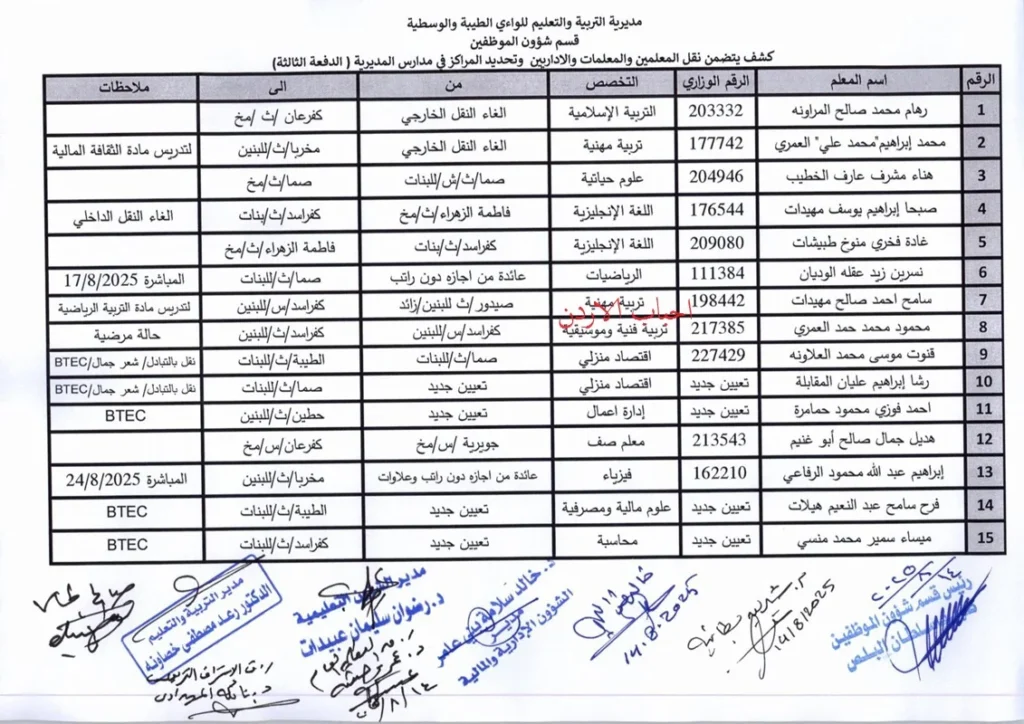 مديرية التربية والتعليم للواءي الطيبة والوسطية
قسم شؤون الموظفين
كشف يتضمن نقل المعلمين والمعلمات والاداريين وتحديد المراكز في مدارس المديرية ( الدفعة الثالثة)
الرقم اسم المعلم الرقم الوزاري التخصص من الى ملاحظات
1 رهام محمد صالح المراونه 203332 التربية الإسلامية الغاء النقل الخارجي كفرعان /ث /مخ
2 محمد إبراهيم"محمد علي" العمري 177742 تربية مهنية الغاء النقل الخارجي مخربا/ث/للبنين لتدريس مادة الثقافة المالية
3 هناء مشرف عارف الخطيب 204946 علوم حياتية صما/ث/ش/للبنات صما/ث/مخ
4 صبحا إبراهيم يوسف مهيدات 176544 اللغة الإنجليزية فاطمة الزهراء/ث/مخ كفراسد/ث/بنات الغاء النقل الداخلي
5 غادة فخري منوخ طبيشات 209080 اللغة الإنجليزية كفراسد/ث/بنات فاطمة الزهراء/ث/مخ
6 نسرين زيد عقله الوديان 111384 الرياضيات عائدة من اجازه دون راتب صما/ث/للبنات المباشرة 17/8/2025
7 سامح احمد صالح مهيدات 198442 تربية مهنية صيدور/ث للبنين/زائد كفراسد/س/للبنين لتدريس مادة التربية الرياضية
احباب الأردن
8 محمود محمد حمد العمري 217385 تربية فنية وموسيقية كفراسد/س/للبنين كفراسد/ث/للبنين حالة مرضية
9 قنوت موسى محمد العلاونه 227429 اقتصاد منزلي صما/ث/للبنات الطيبة/ث/للبنات نقل بالتبادل/ شعر جمال/BTEC
10 رشا إبراهيم عليان المقابلة تعيين جديد اقتصاد منزلي تعيين جديد صما/ث/للبنات نقل بالتبادل/ شعر جمال/BTEC
11 احمد فوزي محمود حمامرة تعيين جديد إدارة اعمال تعيين جديد حطين/ث/للبنين BTEC
12 هديل جمال صالح أبو غنيم 213543 معلم صف جويرية /س/مخ كفرعان/س/مخ
13 إبراهيم عبد الله محمود الرفاعي 162210 فيزياء عائدة من اجازه دون راتب وعلاوات مخربا/ث/للبنين المباشرة 24/8/2025
14 فرح سامح عبد النعيم هيلات تعيين جديد علوم مالية ومصرفية تعيين جديد الطيبة/ث/للبنات BTEC
15 ميساء سمير محمد منسي تعيين جديد محاسبة تعيين جديد كفراسد/ث/للبنات BTEC
رئيس قسم شؤون الموظفين
سلطان البلص
14/8/2025
14.8.2025
مدير
الشؤون الإدارية والمالية
مدير الشؤون التعليمية
د. رضوان سليمان عبيدات
مدير التربية والتعليم
الدكتور رعد مصطفى خصاونه